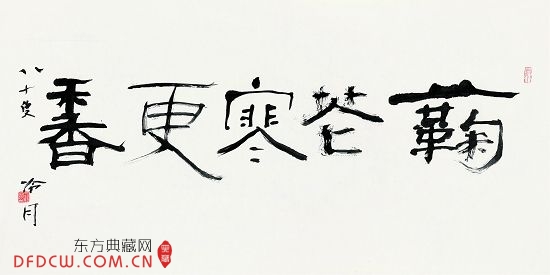 蘜花寒更香
八十叟
冷月
东方典藏网
DFDCW.COM.CN